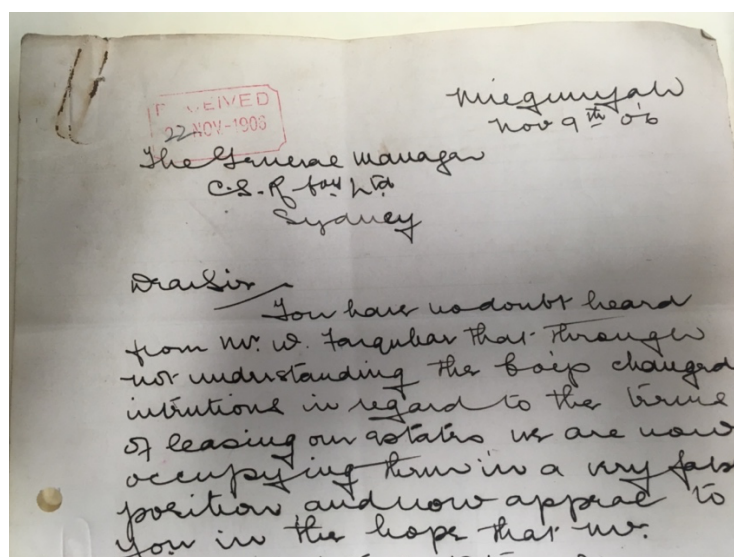 Miegunyah
Nov 9th 06
RECEIVED
22 NOV-1906
The General Manager
C.S.R Coy Ltd
Sydney
Dear Sir
You have no doubt heard
from Mr. W. Farquhar that through
not understanding the Coys changed
intentions in regard to the terms
of leasing our estates we are now
occupying them in a very fals
position and now appeal to
you in the hope that Mr.